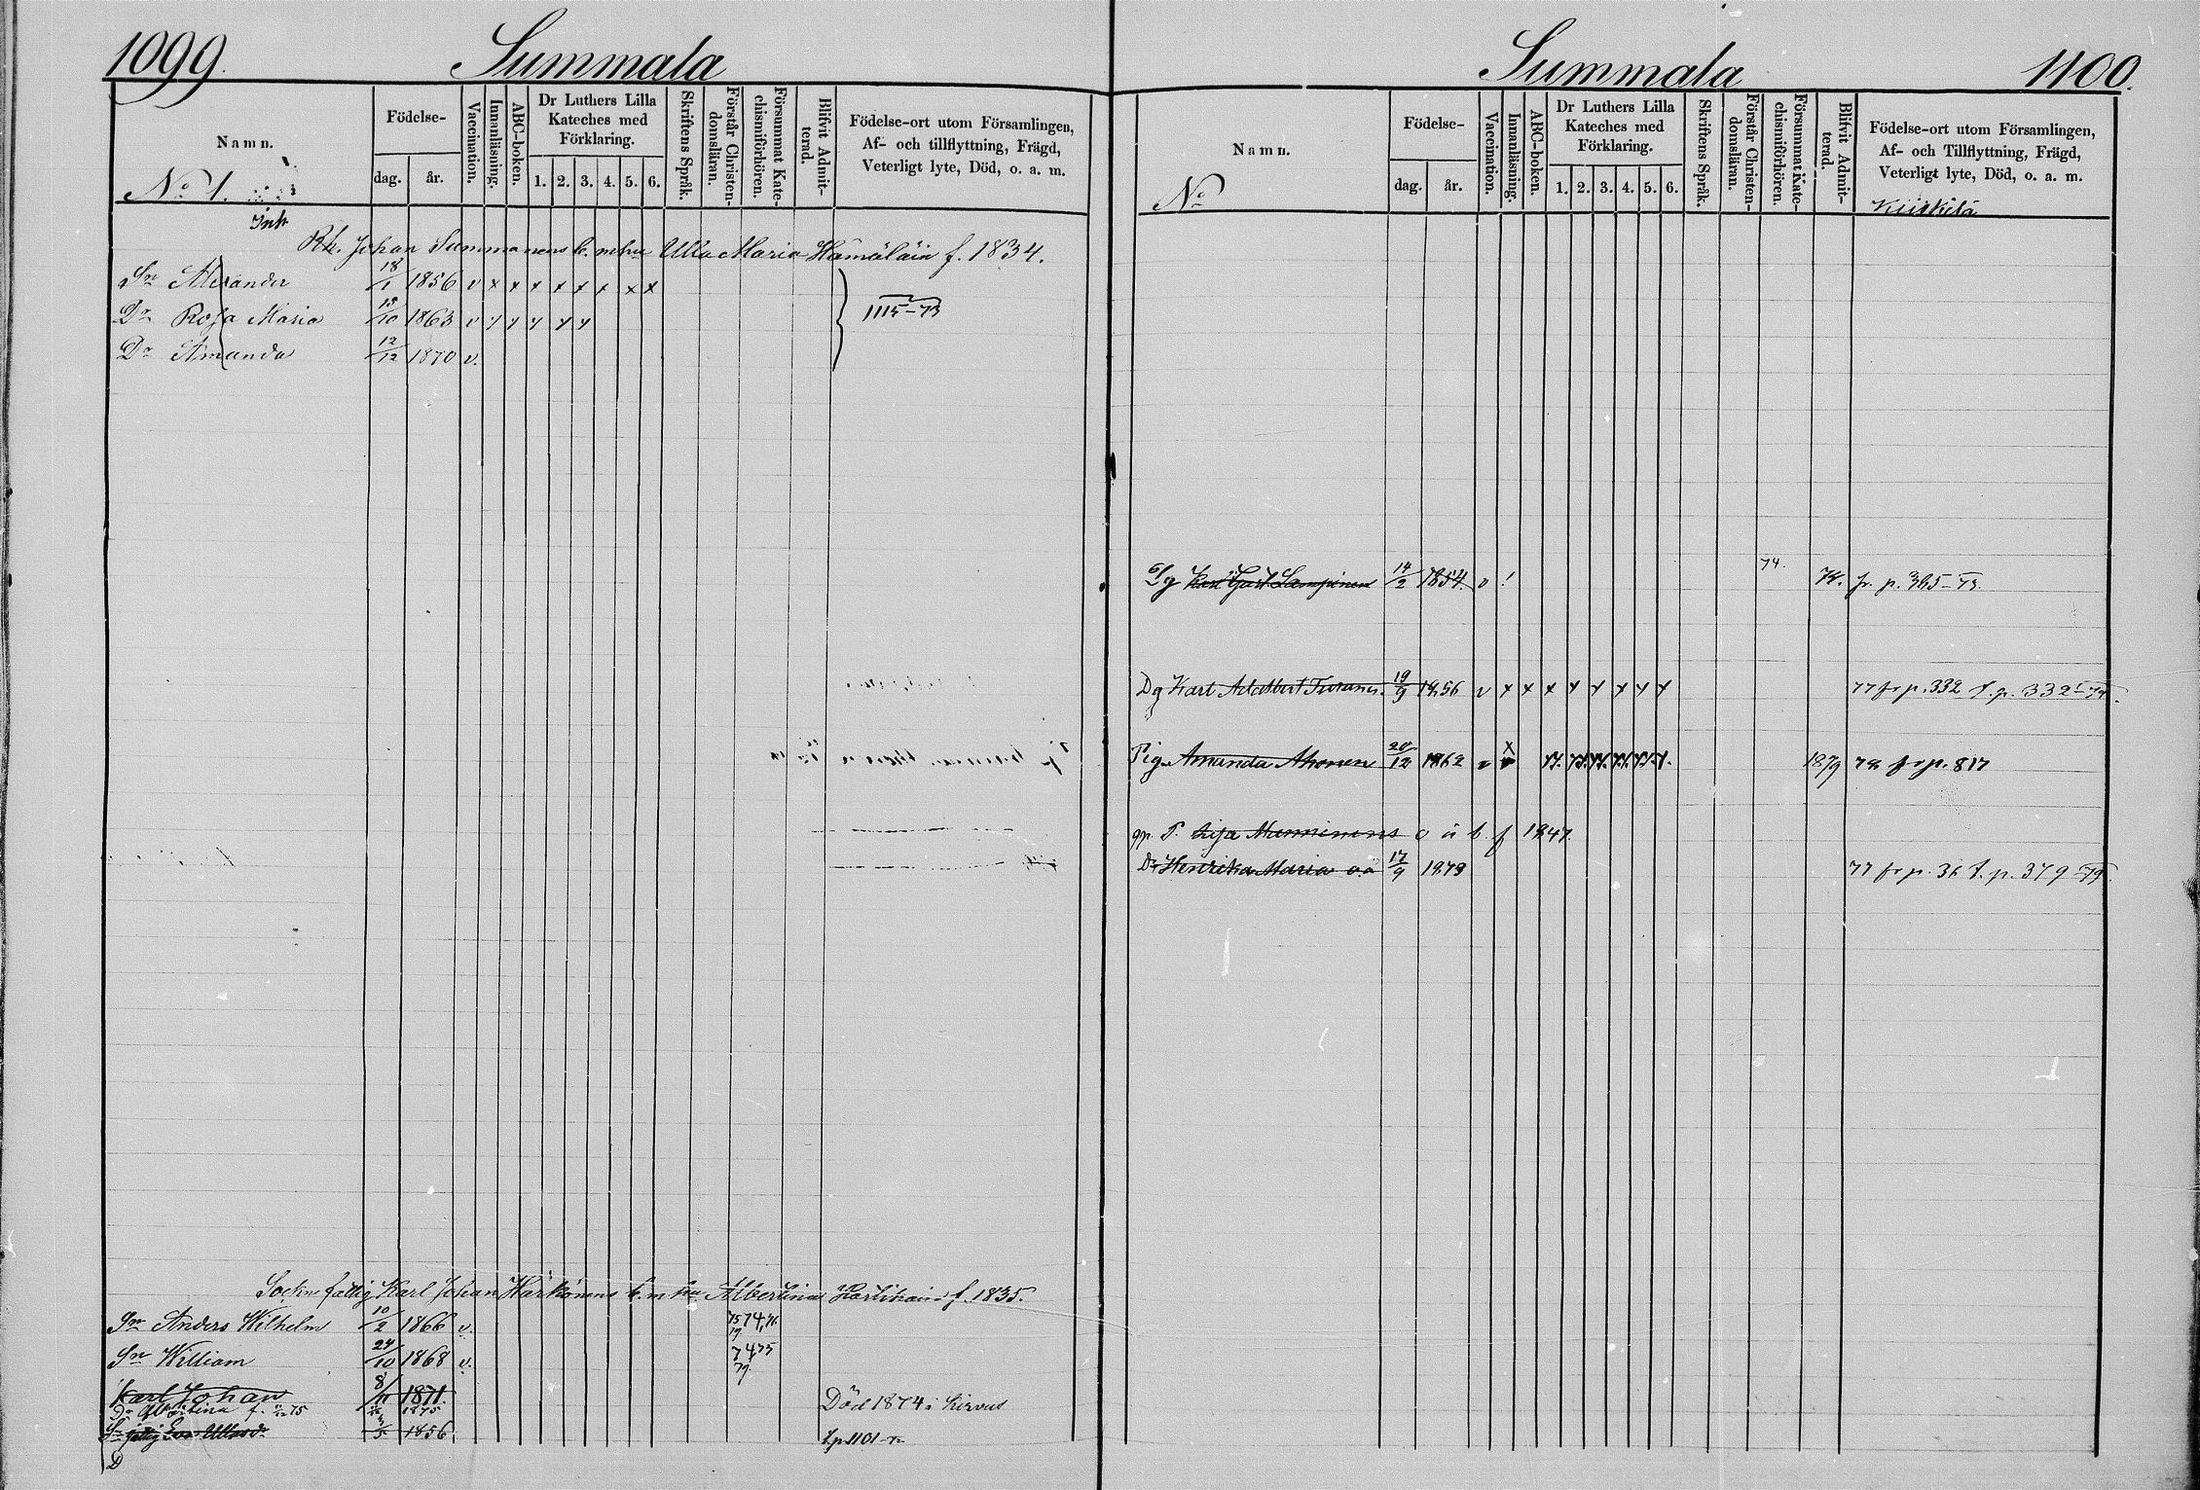 1099.
Summala
Namn.
No 1.
Födelse-
dag.
år.
Vaccination.
Innanläsning.
ABC-boken.
Dr Luthers Lilla
Kateches med
Förklaring.
1. 2. 3. 4. 5. 6.
Skriftens Språk.
Förstår Christen-
domsläran.
Försummat Kate-
chismiförhören.
Blifvit Admit-
terad.
Födelse-ort utom Församlingen,
Af- och tillflyttning, Frägd,
Veterligt lyte, Död, o. a. m.
Inh
Johan Summanens b. m hu Ulla Maria Hämäläin f. 1834.
Sn Alexander 18/1 1856 v x x x x x x x x
Dr Rosa Maria 13/10 1863 v
1115-73
Dr Amanda 12/12 1870 v.
fattig Karl Johan Härkönens b. m hu Albertina f. 1835.
Sn Anders Wilhelm 10/2 1866 v.
Sn William 24/10 1868 v.
Karl Johan 8/11 1871. Död 1874 i
Dr Albertina f. 1875
1856. t.p. 1101
D
Summala
1100.
Namn.
No
Födelse-
dag.
år.
Vaccination.
Innanläsning.
ABC-boken.
Dr Luthers Lilla
Kateches med
Förklaring.
1. 2. 3. 4. 5. 6.
Skriftens Språk.
Förstår Christen-
domsläran.
Försummat Kate-
chismiförhören.
Blifvit Admit-
terad.
Födelse-ort utom Församlingen,
Af- och Tillflyttning, Frägd,
Veterligt lyte, Död, o. a. m.
Lampinen 14/2 1854. v ! 74. fr. p. 365-73.
Dg Karl Adalbert Turunen 19/9 1856 v x x x x x x x x 77 fr p. 332 t. p. 332
Pig. Amanda Ahonen 20/12 1862 v x 1879 78 fr p. 817
Manninens o ä b f 1847.
Dr Henrika Maria o.ä 17/9 1873 77 fr p. 36 t. p. 379-79.